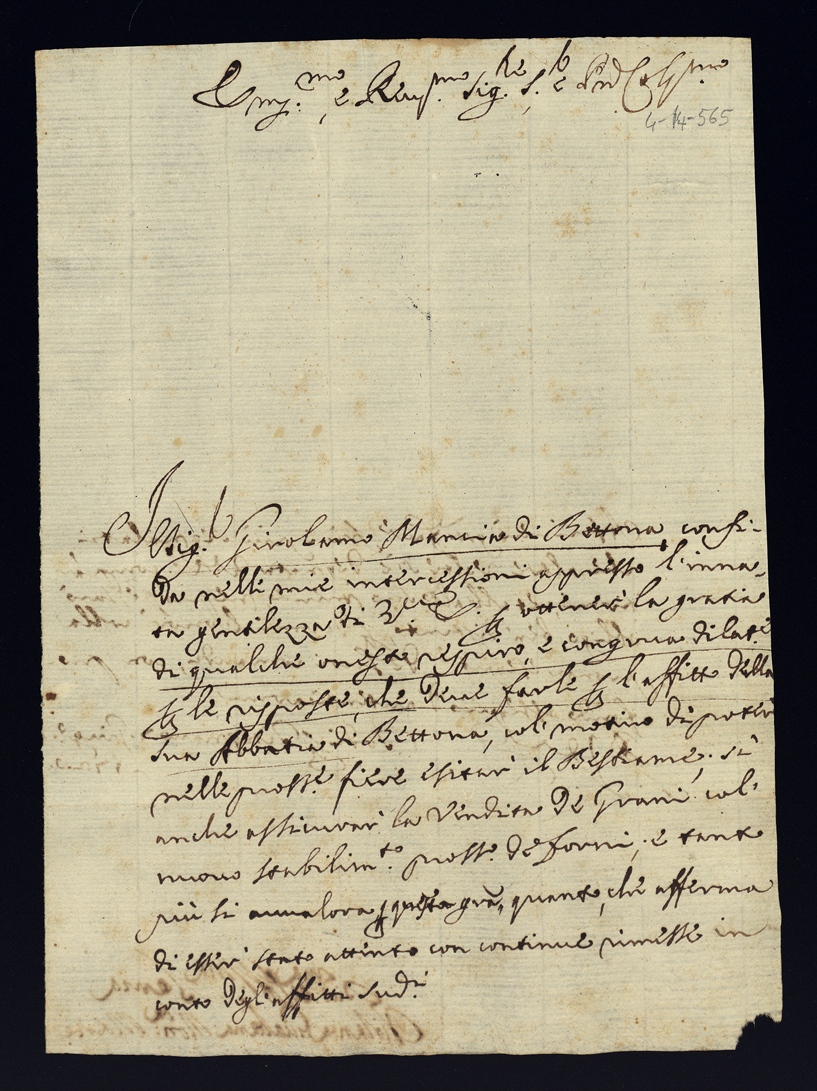 Em.mo e Rev.mo Sig.re S.re e P.rõ Col.mo
4-14-565
Il Sig.r Girolamo Mancia di Bettona confi-
da nelle mie intercessioni appresso l'inna-
ta gentilezza di V. E. p ottenere la gratia
di qualche onesto respiro, e congrua dilate
p le risposte, che deve farle p l'affitto della
sua Abbatia di Bettona, col motivo di poter
nelle pross.e fiere esitare il Bestiame, sì
anche assicurar la vendita de Grani col
nuovo stabilim.to pross.o de forni; e tanto
più si avvalora p questa gra, quanto, che afferma
di esser stato attento con continue rimesse in
conto degl'affitti sud.i